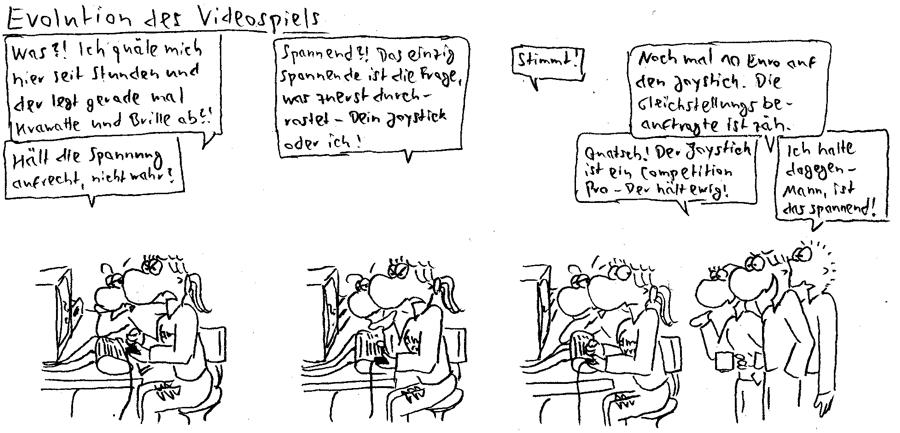 Evolution des Videospiels
Was?! Ich quäle mich
hier seit Stunden und
der legt gerade mal
Krawatte und Brille ab?!
Hält die Spannung
aufrecht, nicht wahr?
Spannend?! Das einzig
spannende ist die Frage,
was zuerst durch-
rostet - Dein Joystick
oder ich!
Stimmt!
Noch mal 10 Euro auf
den Joystick. Die
Gleichstellungsbe-
auftragte ist zäh.
Quatsch! Der Joystick
ist ein Competition
Pro - Der hält ewig!
Ich halte
dagegen -
Mann, ist
das spannend!